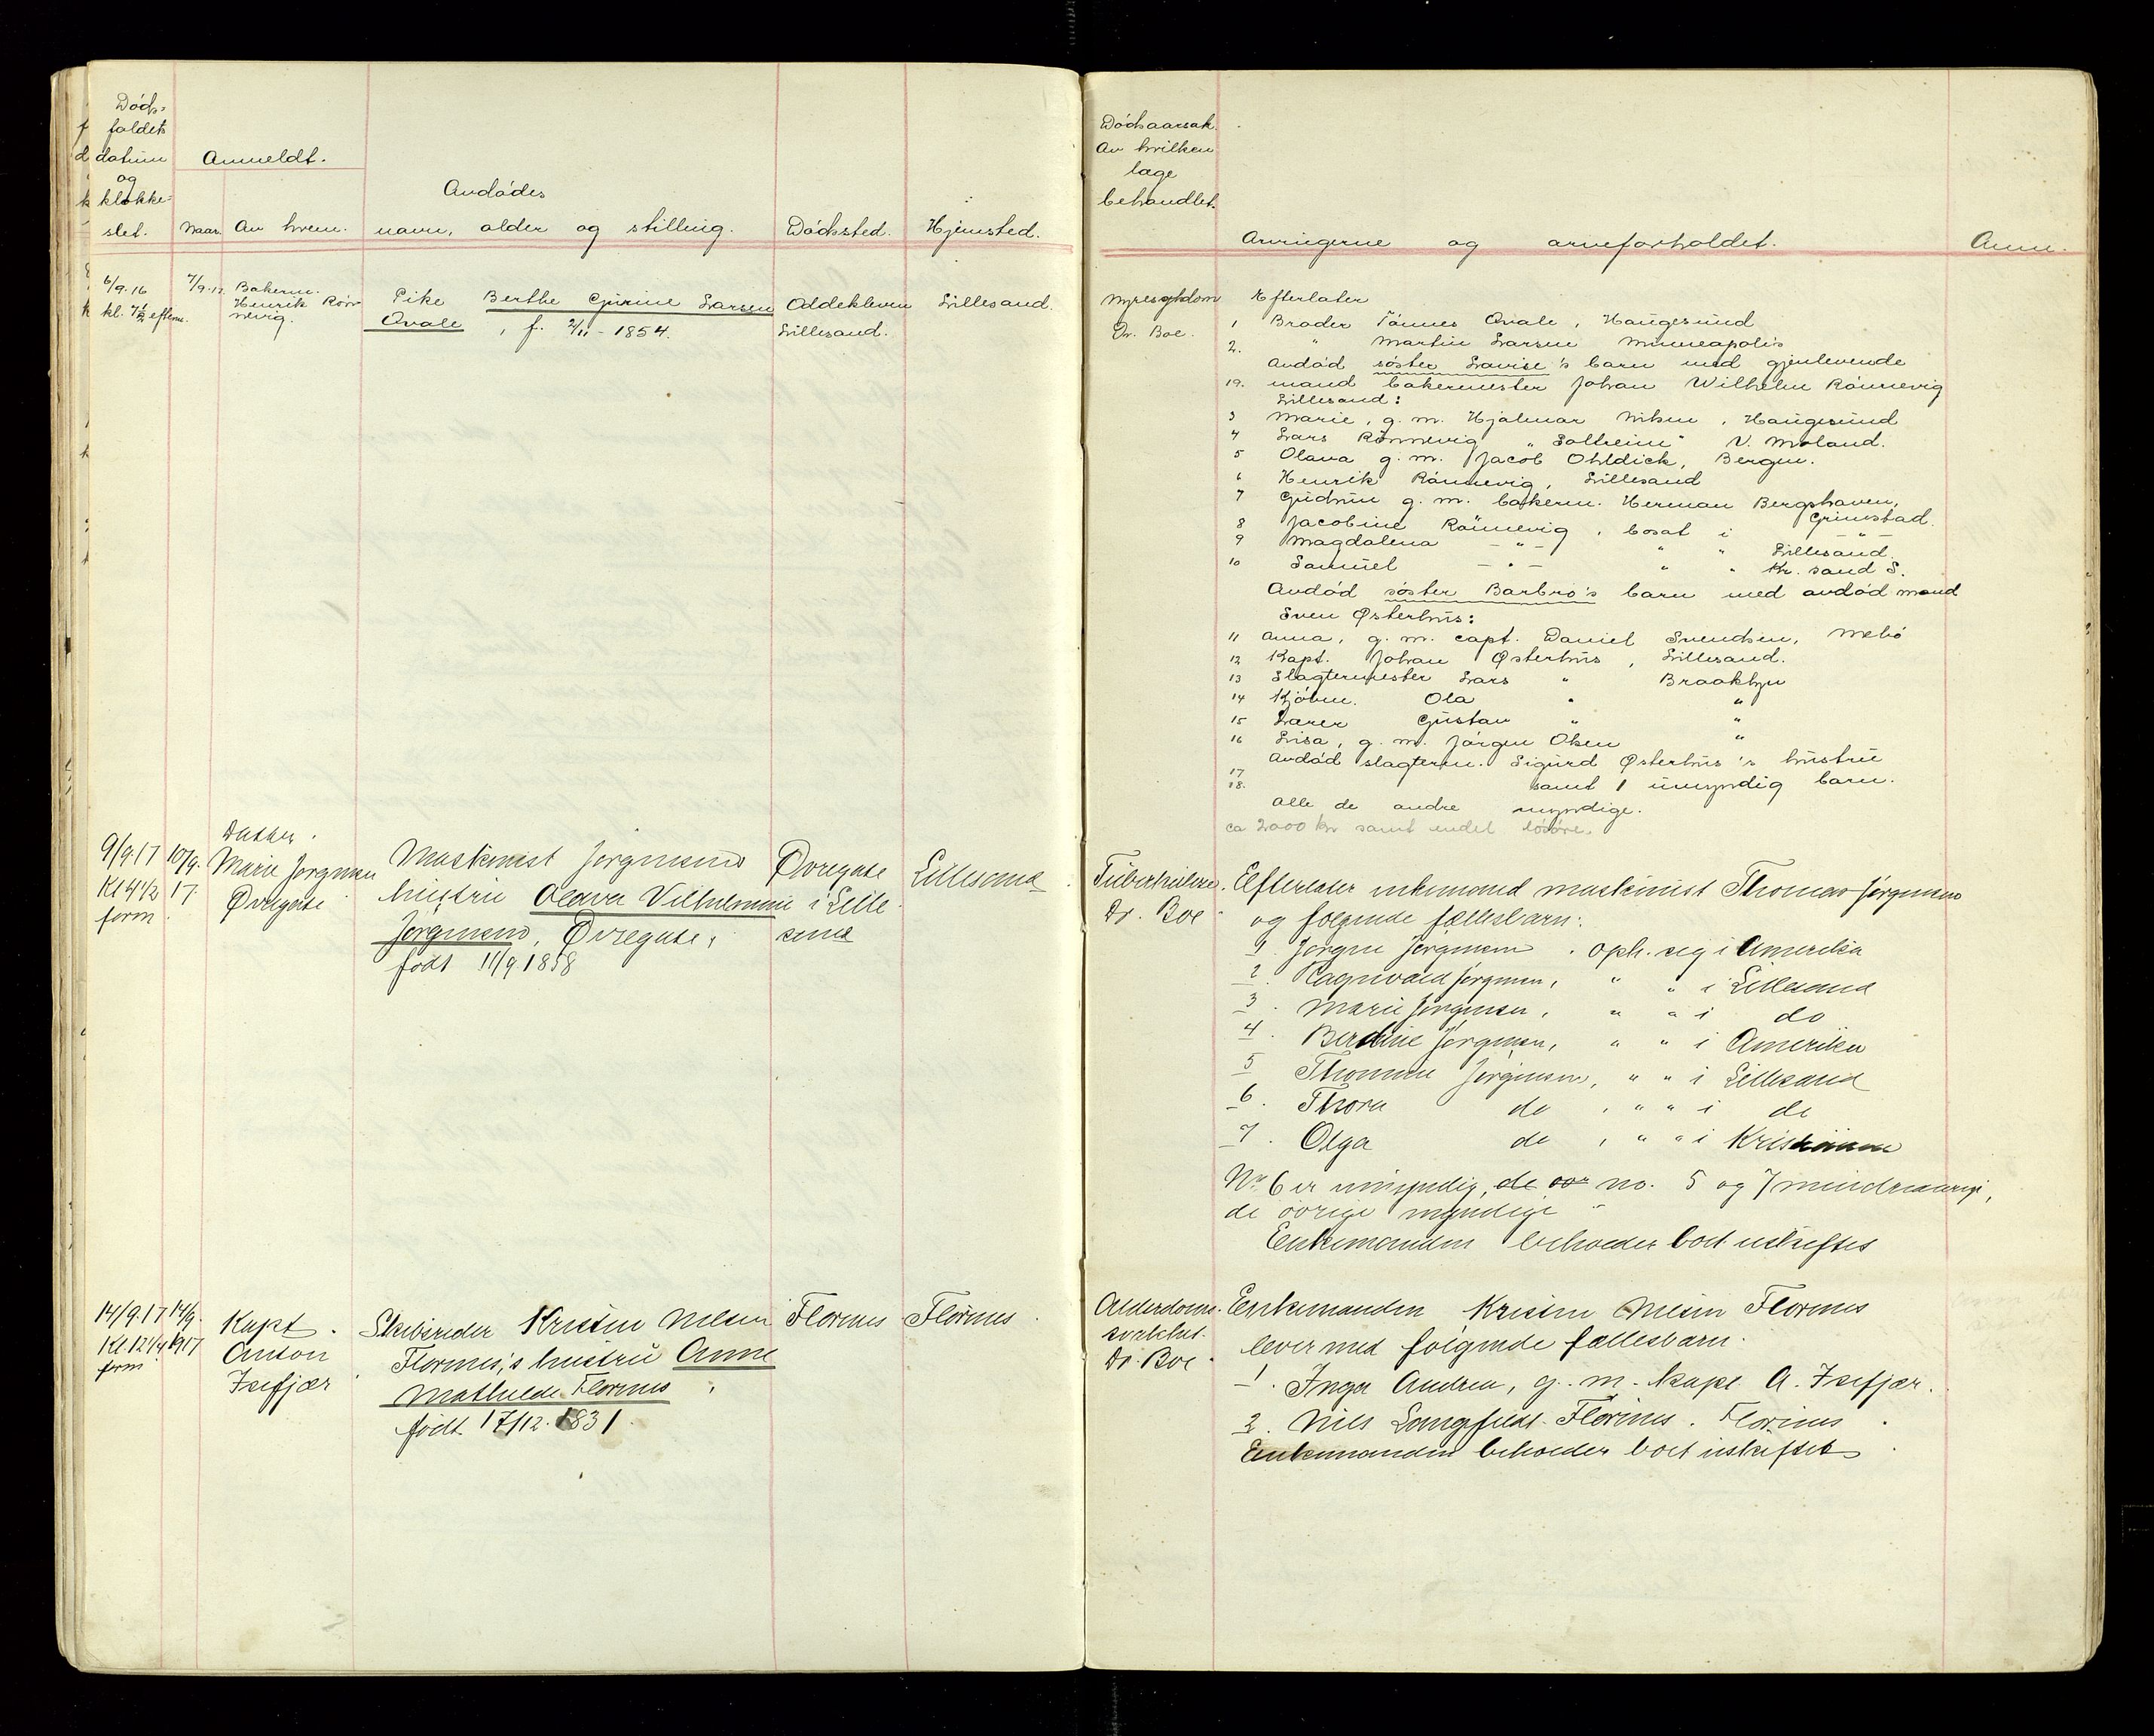 Døds-
faldets
datum
og
klokke-
slet.
Anmeldt.
Naar. Av hvem.
Avdødes
navn, alder og stilling.
Dødssted.
Hjemsted.
Dødsaarsak.
Av hvilken
læge
behandlet.
Arvingerne og arveforholdet.
Anm.
6/9.16
kl. 7½ efterm.
7/9.17.
Bakerm.
Henrik Rønnevig.
Pike Berthe Gurine Larsen
Ovale, f. 2/11-1854.
Oddekleven
Lillesand.
Lillesand.
Nyresygdom
Dr. Boe.
Efterlater
1 Broder Tønnes Ovale, Haugesund
2. " Martin Larsen Minneapolis
Avdød søster Lavise's barn med gjenlevende
19. mand bakermester Johan Wilhelm Rønnevig
Lillesand:
3 Marie, g. m. Hjalmar , Haugesund
4 Lars Rønnevig "Solheim" V. Moland.
5 Olava g. m. Jacob Ohldick, Bergen.
6 Henrik Rønnevig, Lillesand
7 Gudrun g. m. bakerm. Herman Bergshaven,
Grimstad.
8 Jacobine Rønnevig, bosat i -"-
9 Magdalena -"- " " Lillesand.
10 Samuel -"- " " Kr. sand S.
Avdød søster Barbro's barn med avdød mand
Sven Østerhus:
11 Anna, g. m. capt. Daniel Svendsen,
12 Kapt. Johan Østerhus, Lillesand.
13 Slagtermester Lars " Brooklyn
14 Kjøbm. Ola " "
15 Lærer Gustav " "
16 Lisa, g. m. Jørgen Olsen "
17 Avdød slagterm. Sigurd Østerhus's hustru
18. samt 1 umyndig barn.
Alle de andre myndige.
ca 2000 kr samt endel løsøre.
9/9.17
Kl 4½
form.
10/9.
17.
Datter.
Marie Jørgensen
Øvregate
Maskinist Jørgensens
hustru Olava Vilhelmine
Jørgensen, Øvregate,
født 11/9 1858
Øvregate
i Lille-
sand
Lillesand
Tuberkulose.
Dr. Boe
Efterlater enkemand maskinist Thomas Jørgensen
og følgende fællesbarn:
1. Jørgen Jørgensen. oph. seg i Amerika
2. Ragnvald Jørgensen, " " i Lillesand
3. Marie Jørgensen, " " i do
4. Berdine Jørgensen, " " i Amerika
5 Thomine Jørgensen, " " i Lillesand
6. Thora do, " " i do
7. Olga do, " " i Kristiania
Nr 6 er umyndig, de no. 5 og 7 mindreaarige,
de øvrige myndige
Enkemanden beholder boet uskiftet
14/9.17
Kl. 12¼
form
14/9.
1917
Kapt.
Anton
Isefjær
Skibsreder Kristen Nelsen
Florenes's hustru Anne
Mathilde Florenes,
født 17/12. 1831.
Florenes
Florenes
Alderdoms-
svakhet.
Dr. Boe
Enkemanden Kristen Nelsen Florenes
lever med følgende fællesbarn.
1. Inga Andrea, g. m. kapt. A. Isefjær.
2. Nils Langfeldt Florenes. Florenes
Enkemanden beholder boet uskiftet